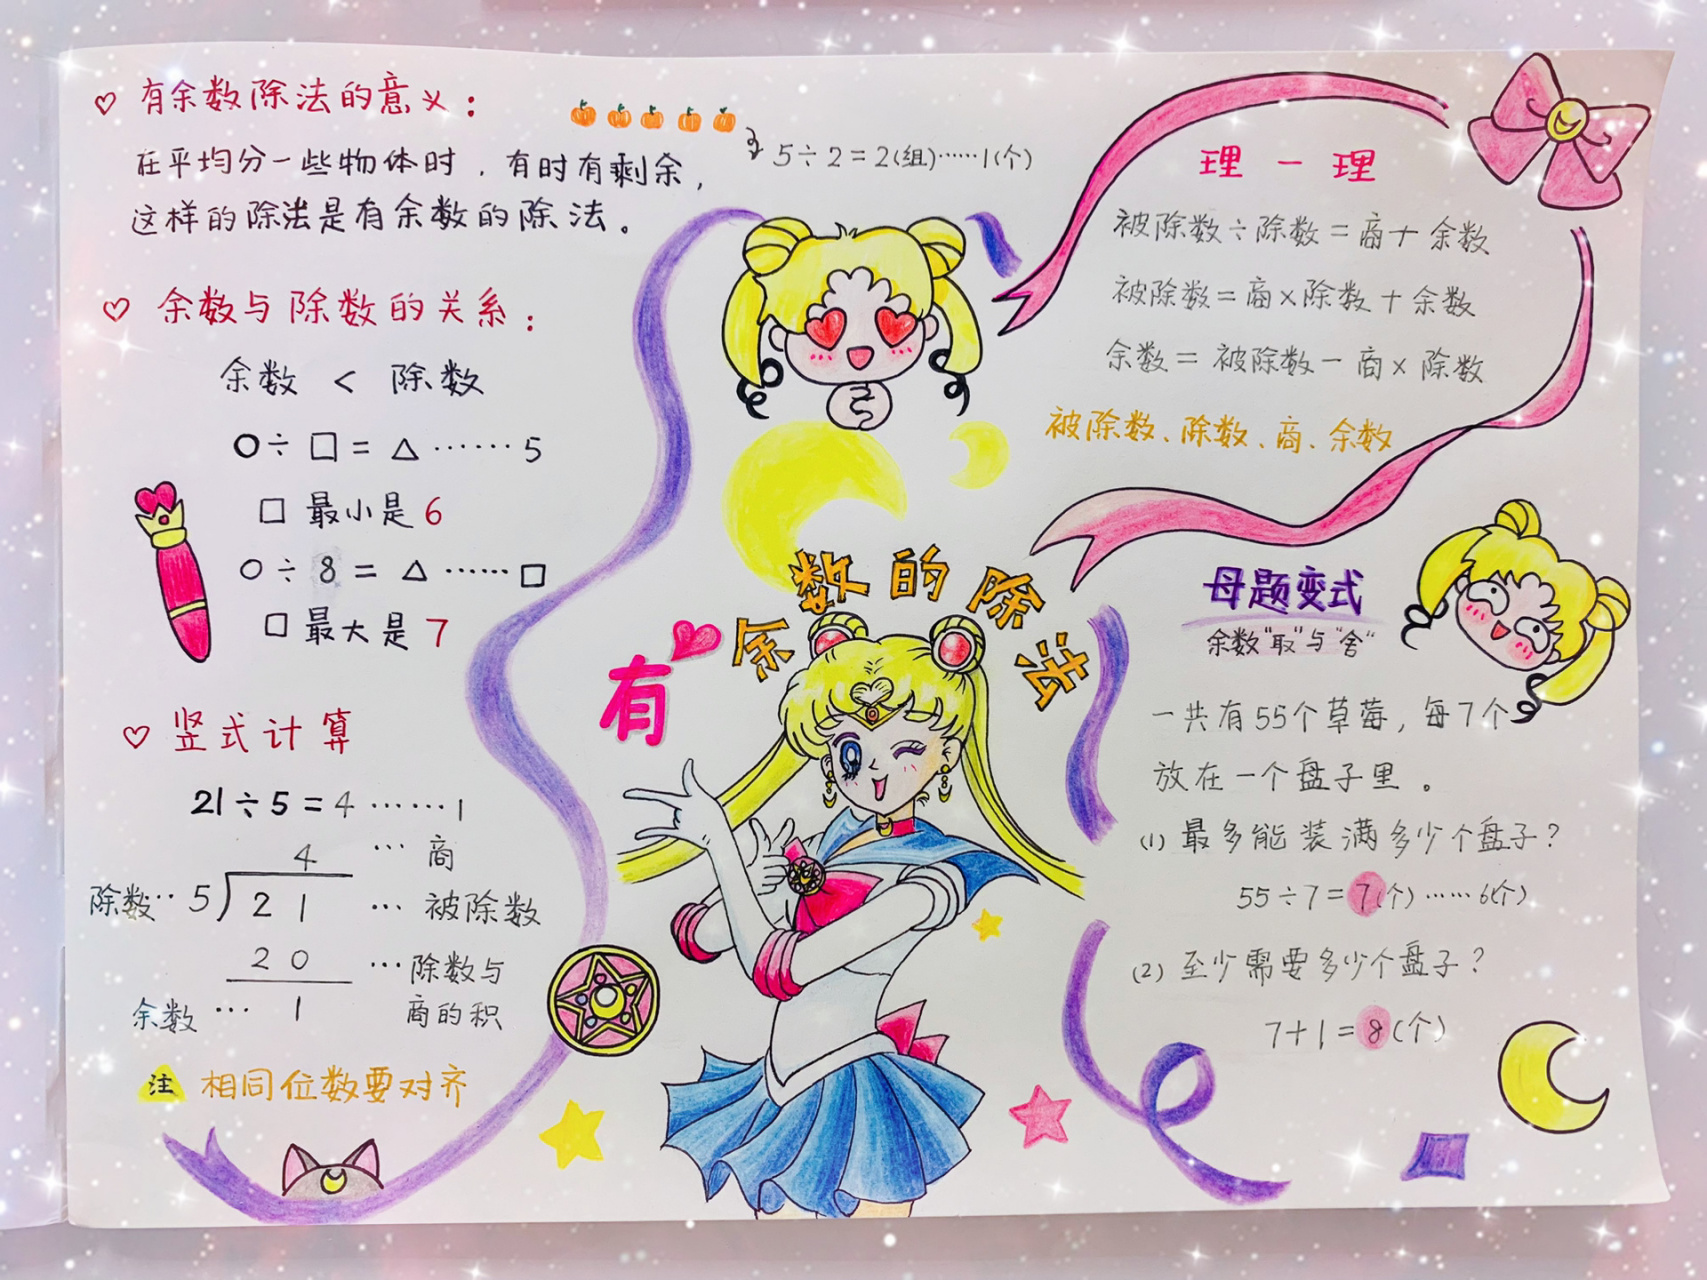 有余数除法的意义：
在平均分一些物体时，有时有剩余，
这样的除法是有余数的除法。
5÷2=2(组)……1(个)
余数与除数的关系：
余数 < 除数
○÷□=△……5
□最小是6
○÷8=△……□
□最大是7
竖式计算
21÷5=4……1
4 … 商
除数… 5 21 … 被除数
20 …除数与
商的积
余数… 1
注 相同位数要对齐
有余数的除法
理一理
被除数÷除数=商+余数
被除数=商×除数+余数
余数=被除数-商×除数
被除数、除数、商、余数
母题变式
余数“取”与“舍”
一共有55个草莓，每7个
放在一个盘子里。
(1) 最多能装满多少个盘子？
55÷7=7(个)……6(个)
(2) 至少需要多少个盘子？
7+1=8(个)